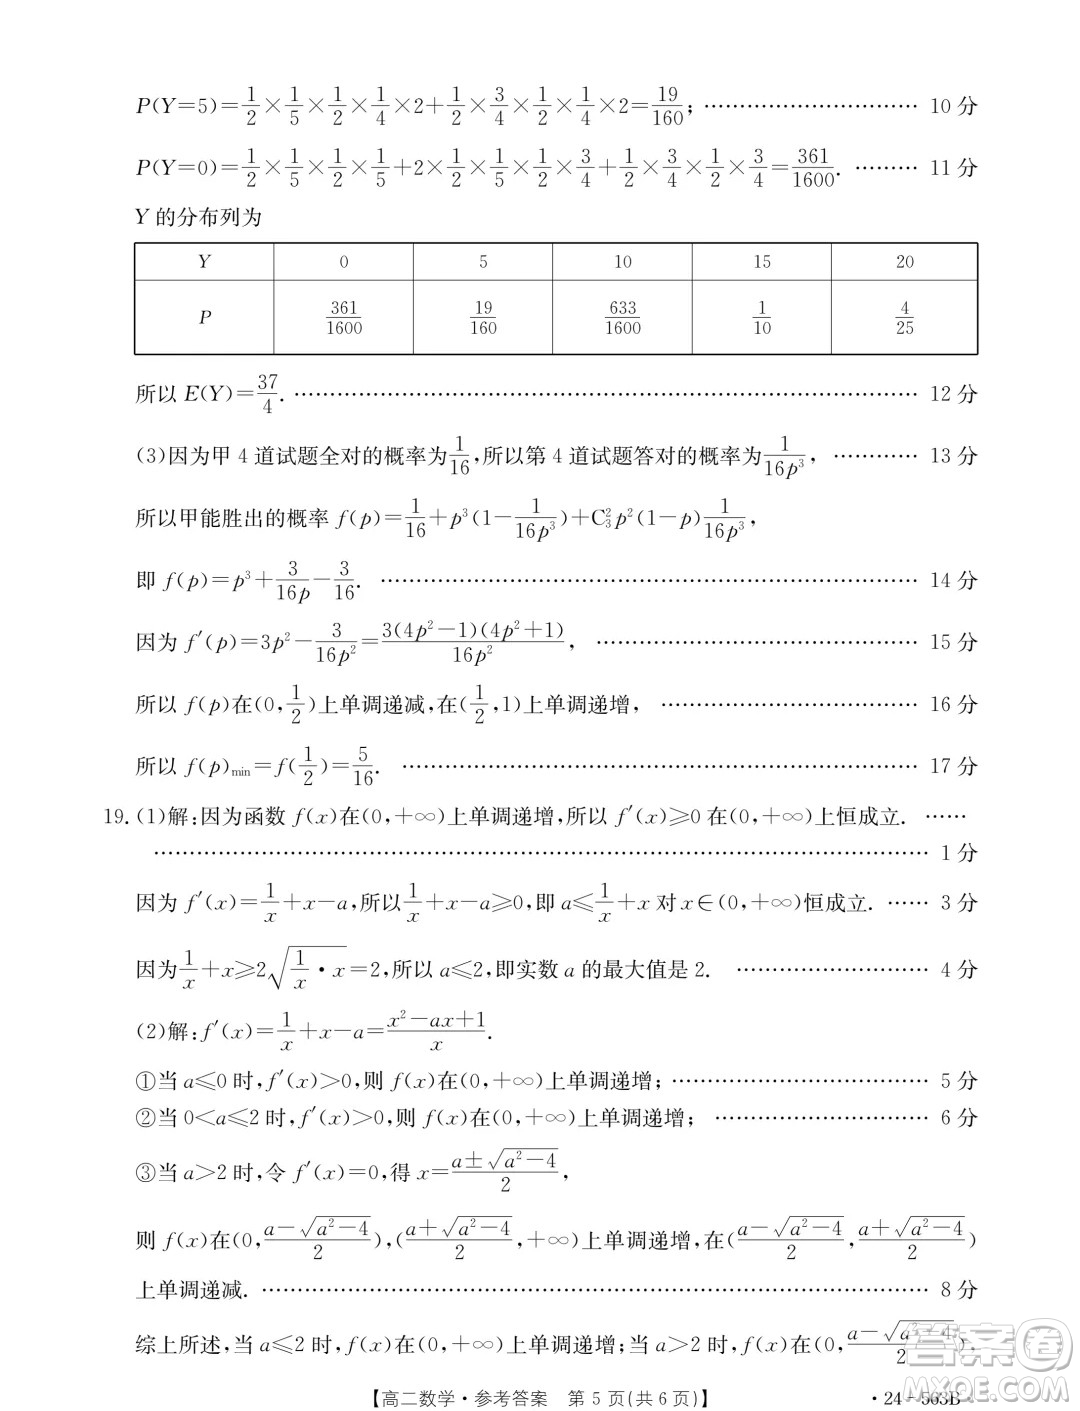 P(Y=5)=1/2×1/5×1/2×1/4×2+1/2×3/4×1/2×1/4×2=19/160; ………………………… 10 分
P(Y=0)=1/2×1/5×1/2×1/5+2×1/2×1/5×1/2×3/4+1/2×3/4×1/2×3/4=361/1600. ……… 11 分
Y 的分布列为
Y 0 5 10 15 20
P 361/1600 19/160 633/1600 1/10 4/25
所以 E(Y)=37/4. ………………………………………………………………………… 12 分
(3)因为甲 4 道试题全对的概率为1/16,所以第 4 道试题答对的概率为1/(16p³), ………… 13 分
所以甲能胜出的概率 f(p)=1/16+p³(1-1/(16p³))+C₃²p²(1-p)1/(16p³),
即 f(p)=p³+3/(16p)-3/16. ………………………………………………………………… 14 分
因为 f′(p)=3p²-3/(16p²)=3(4p²-1)(4p²+1)/(16p²), ……………………………………… 15 分
所以 f(p)在(0,1/2)上单调递减,在(1/2,1)上单调递增, ……………………………… 16 分
所以 f(p)min=f(1/2)=5/16. ……………………………………………………………… 17 分
19.(1)解:因为函数 f(x)在(0,+∞)上单调递增,所以 f′(x)≥0 在(0,+∞)上恒成立. ……
………………………………………………………………………………………………… 1 分
因为 f′(x)=1/x+x-a,所以1/x+x-a≥0,即 a≤1/x+x 对 x∈(0,+∞)恒成立. …… 3 分
因为1/x+x≥2√(1/x·x)=2,所以 a≤2,即实数 a 的最大值是 2. ……………………… 4 分
(2)解:f′(x)=1/x+x-a=(x²-ax+1)/x.
①当 a≤0 时,f′(x)>0,则 f(x)在(0,+∞)上单调递增; ……………………………… 5 分
②当 0<a≤2 时,f′(x)>0,则 f(x)在(0,+∞)上单调递增; ………………………… 6 分
③当 a>2 时,令 f′(x)=0,得 x=(a±√(a²-4))/2,
则 f(x)在(0,(a-√(a²-4))/2),((a+√(a²-4))/2,+∞)上单调递增,在((a-√(a²-4))/2,(a+√(a²-4))/2)
上单调递减. ……………………………………………………………………………… 8 分
综上所述,当 a≤2 时,f(x)在(0,+∞)上单调递增;当 a>2 时,f(x)在(0,(a-√(a²-4))/2),
【高二数学·参考答案 第 5 页(共 6 页)】 ·24-563B·
答案圈
MXQE.COM